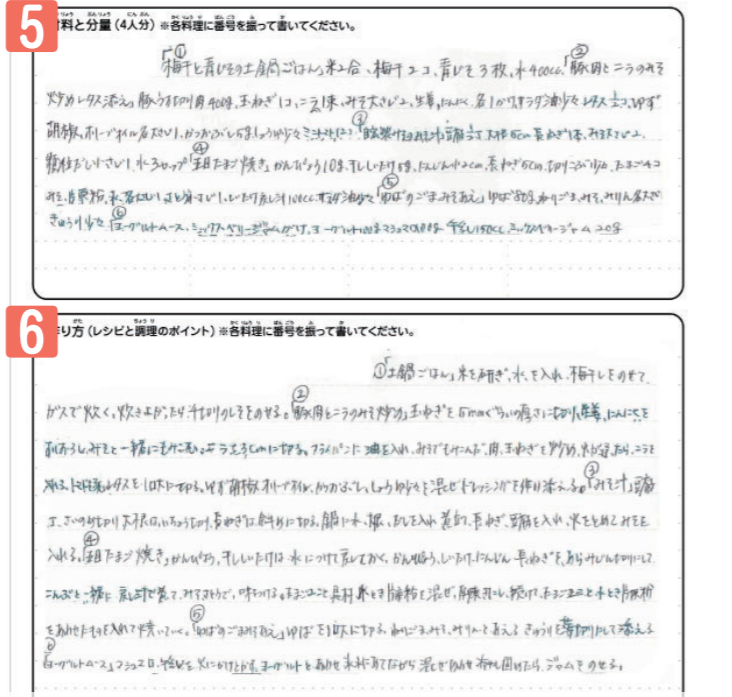 5
材料と分量(4人分)※各料理に番号を振って書いてください。
①「梅干と青じその土鍋ごはん」米2合、梅干2コ、青じそ3枚、水400cc、②「豚肉とニラのみそ
炒めレタス添え」豚うす切り肉400g、玉ねぎ1コ、ニラ1束、みそ大さじ2、生姜、にんにく、各1かけ、サラダ油少々 レタス ゆず
胡椒、オリーブオイル各大さじ1、かつおぶし5g、しょうゆ少々 ミニトマト ③ みそ汁 豆腐 大根5cm 長ねぎ1本、みそ大さじ2、
顆粒だし小さじ1、水3カップ ④ たまご焼き」かんぴょう10g、干ししいたけ5g、にんじん小2cm、長ねぎ5cm、切りこぶ少々、たまご4コ
みそ、片栗粉、水、各大さじ1、さとう小さじ1、しいたけ戻し汁100cc、サラダ油少々 ⑤「ゆばのごまみそあえ」ゆば80g、ねりごま、みそ、みりん各大さじ
きゅうり少々 ⑥「ヨーグルトムース、ミックスベリージャムがけ」ヨーグルト100g マシュマロ100g 牛乳150cc ミックスベリージャム 20g
6
作り方(レシピと調理のポイント)※各料理に番号を振って書いてください。
①「土鍋ごはん」米を研ぎ、水を入れ、梅干しをのせて、
ガスで炊く。炊き上がったら千切りのしそをのせる。②「豚肉とニラのみそ炒め」玉ねぎを5mmぐらいの厚さに切り、生姜、にんにくを
すりおろし、みそと一緒にもみこむ。ニラを5cmに切る。フライパンに油を入れ、みそでもみこんだ肉、玉ねぎを炒め、火が通ったら、ニラを
入れる。レタスを1口大に切る。ゆず胡椒、オリーブオイル、かつおぶし、しょうゆ少々を混ぜドレッシングを作り添える。③「みそ汁」豆腐
は、さいのめ切り 大根は、いちょう切り、長ねぎは斜めに切る。鍋に水、大根、だしを入れ 長ねぎ、豆腐を入れ、火をとめてみそを
入れる。④ たまご焼き」かんぴょう、干ししいたけは水につけて戻しておく。かんぴょう、しいたけ、にんじん 長ねぎを、あらみじん切りにして
こんぶと一緒に戻し汁で煮て、みそさとうで、味をつける。たまごに 具材 水とき片栗粉を混ぜ、
をあわせたものを入れて焼いていく。⑤「ゆばのごまみそあえ」ゆばを1口大に切る。ねりごま、みそ、みりんとあえる きゅうりを して添える
⑥「ヨーグルトムース」マシュマロ、牛乳を火にかけとかす。ヨーグルトとあわせ 氷水にあてながら 混ぜあわせ 冷やし固めたら、ジャムをのせる。